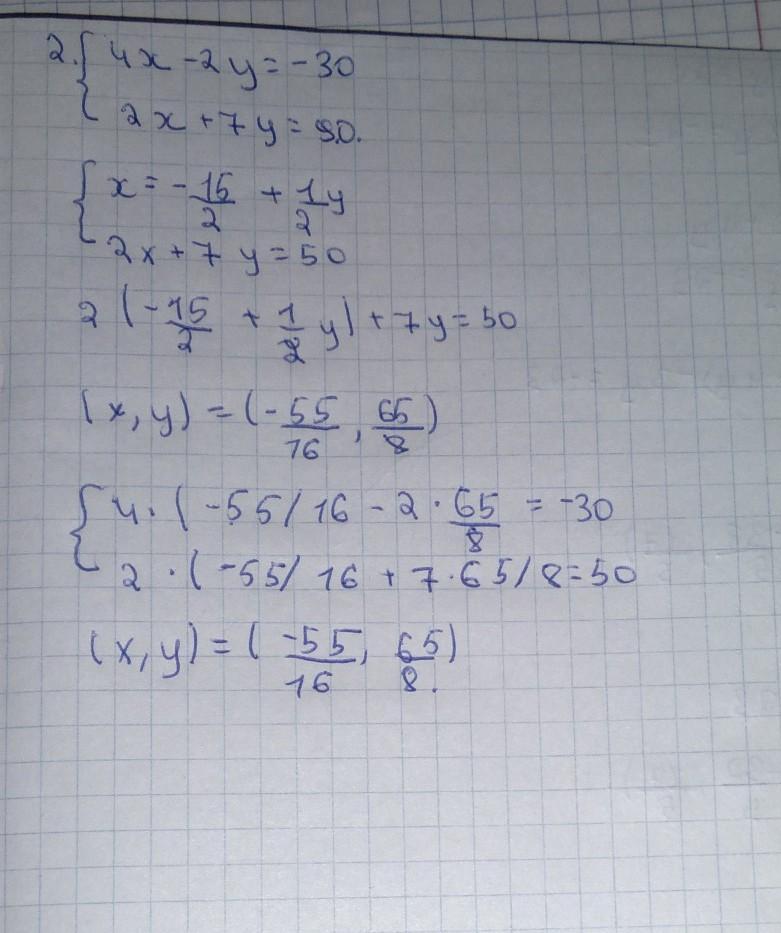 2. { 4x - 2y = -30
2x + 7y = 50.
{ x = - 15/2 + 1/2 y
2x + 7y = 50
2 (- 15/2 + 1/2 y) + 7y = 50
(x, y) = (- 55/16, 65/8)
{ 4 · (-55/16 - 2 · 65/8 = -30
2 · (-55/16 + 7 · 65/8 = 50
(x, y) = (-55/16, 65/8).